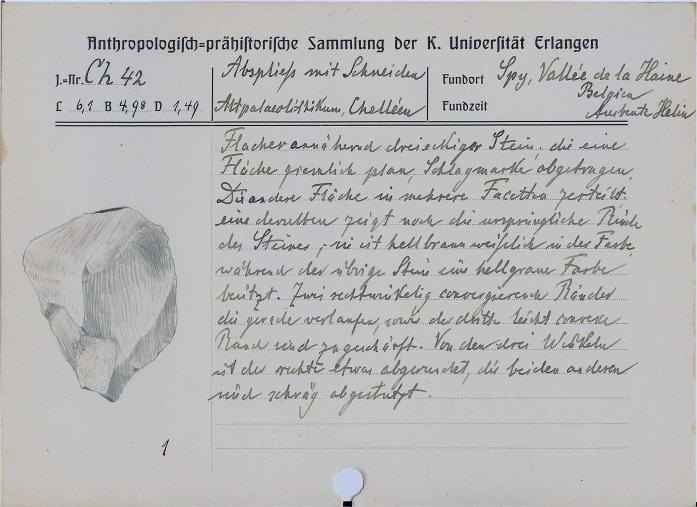 Anthropologisch=prähistorische Sammlung der K. Universität Erlangen
J.=Nr. Ch 42
L 6,1 B 4,98 D 1,49
Abspliess mit Schneiden
Altpalaeolithikum, Chelléen
Fundort Spy, Vallée de la Haine
Belgien
Fundzeit Ausbeute Helin
Flacher annähernd dreieckiger Stein, die eine
Fläche ziemlich plan, Schlagmarke abgetragen.
Die andere Fläche in mehrere Facetten zerteilt.
eine derselben zeigt noch die ursprüngliche Rinde
des Steines, sie ist hellbraun weißlich in der Farbe
während der übrige Stein eine hellgraue Farbe
besitzt. Zwei rechtwinkelig convergierende Ränder
die gerade verlaufen, sowie der dritte leicht convexe
Rand sind zugeschärft. Von den drei Winkeln
ist der rechte etwas abgerundet, die beiden anderen
sind schräg abgestutzt.
1